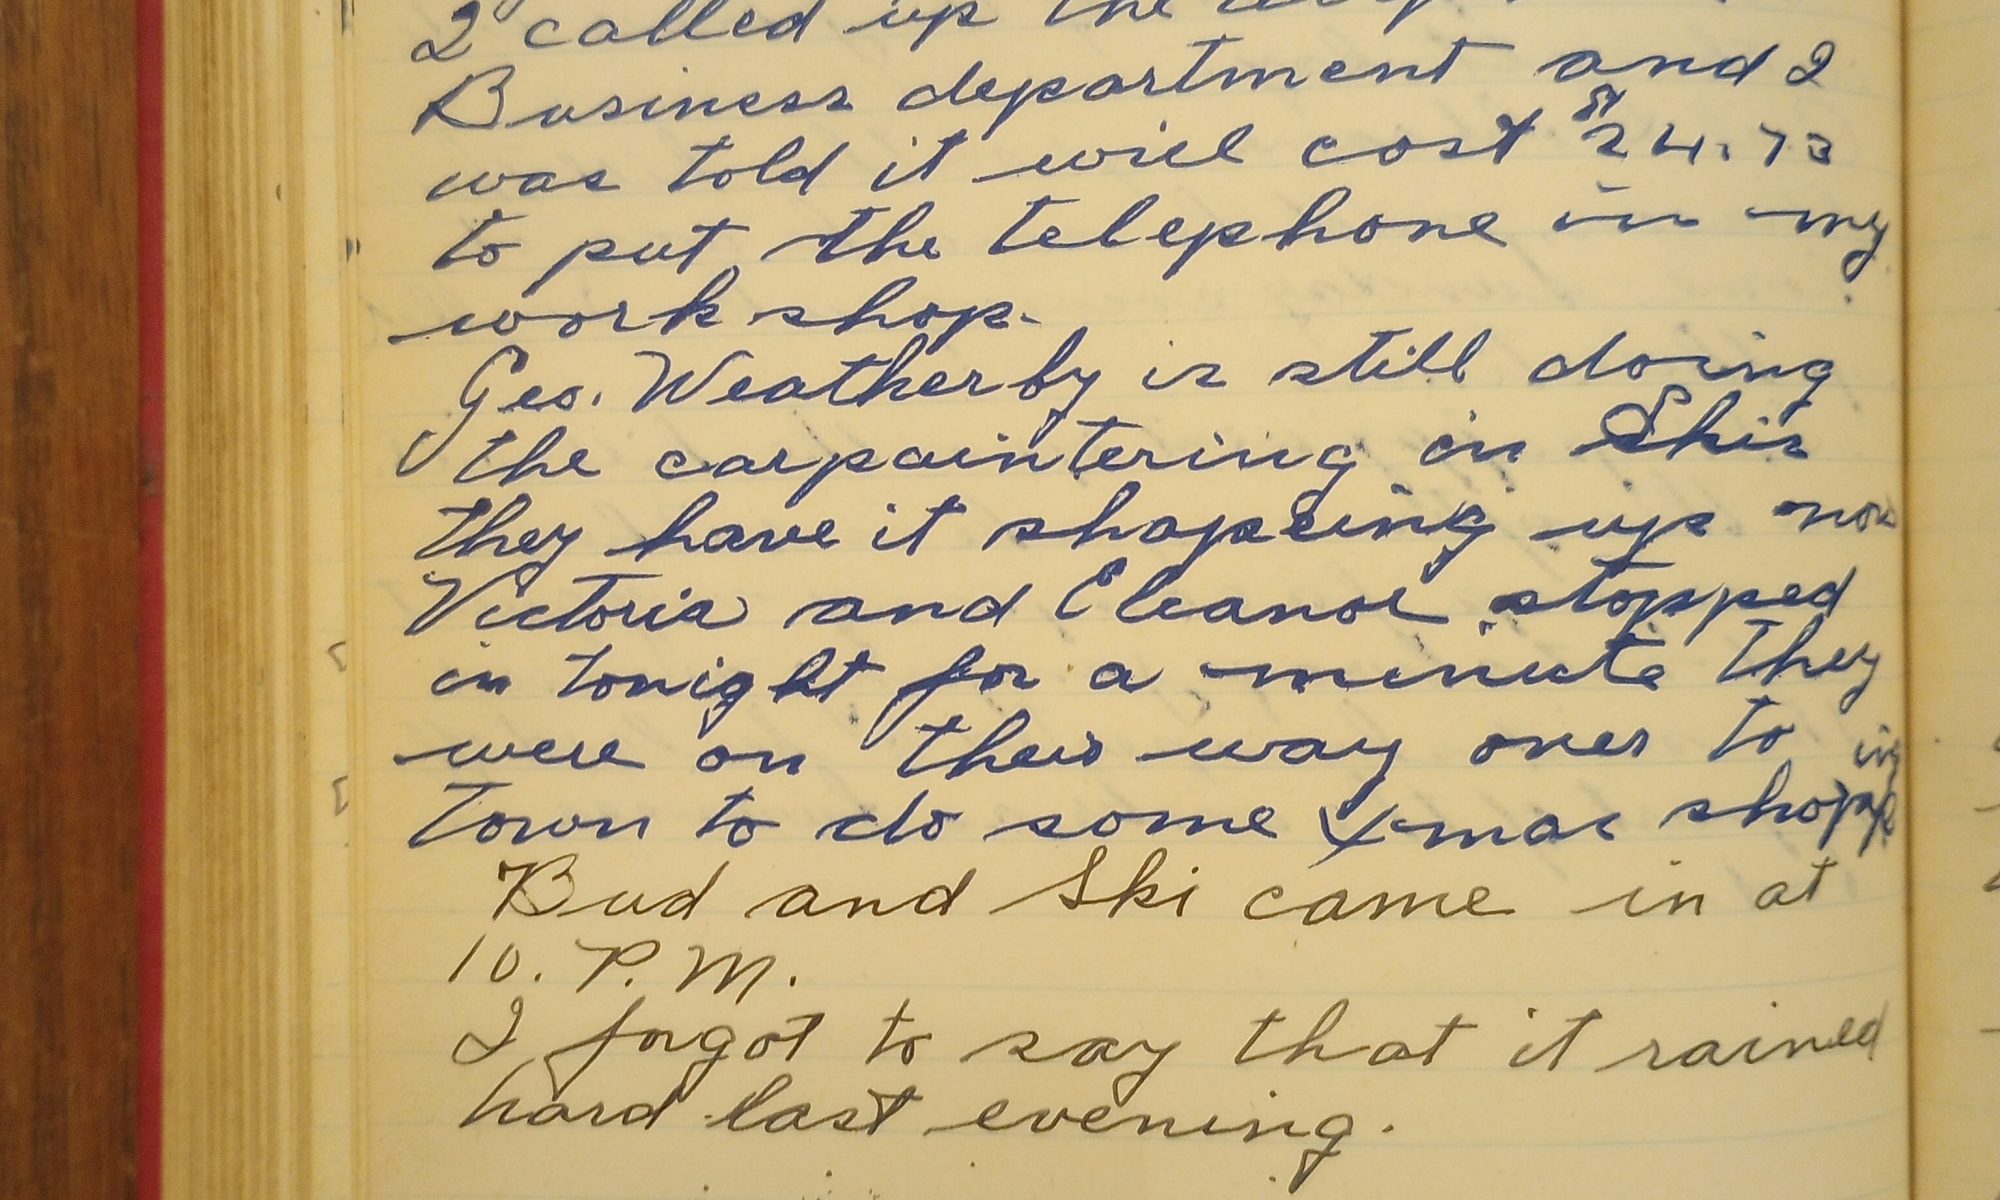 I called up the
Business department and I
was told it will cost $24.73
to put the telephone in my
work shop.
Geo. Weatherby is still doing
the carpaintering in Skis
they have it shapeing up now
Victoria and Eleanor stopped
in tonight for a minute They
were on their way over to
town to do some X-mas shopping
Bud and Ski came in at
10. P.M.
I forgot to say that it rained
hard last evening.